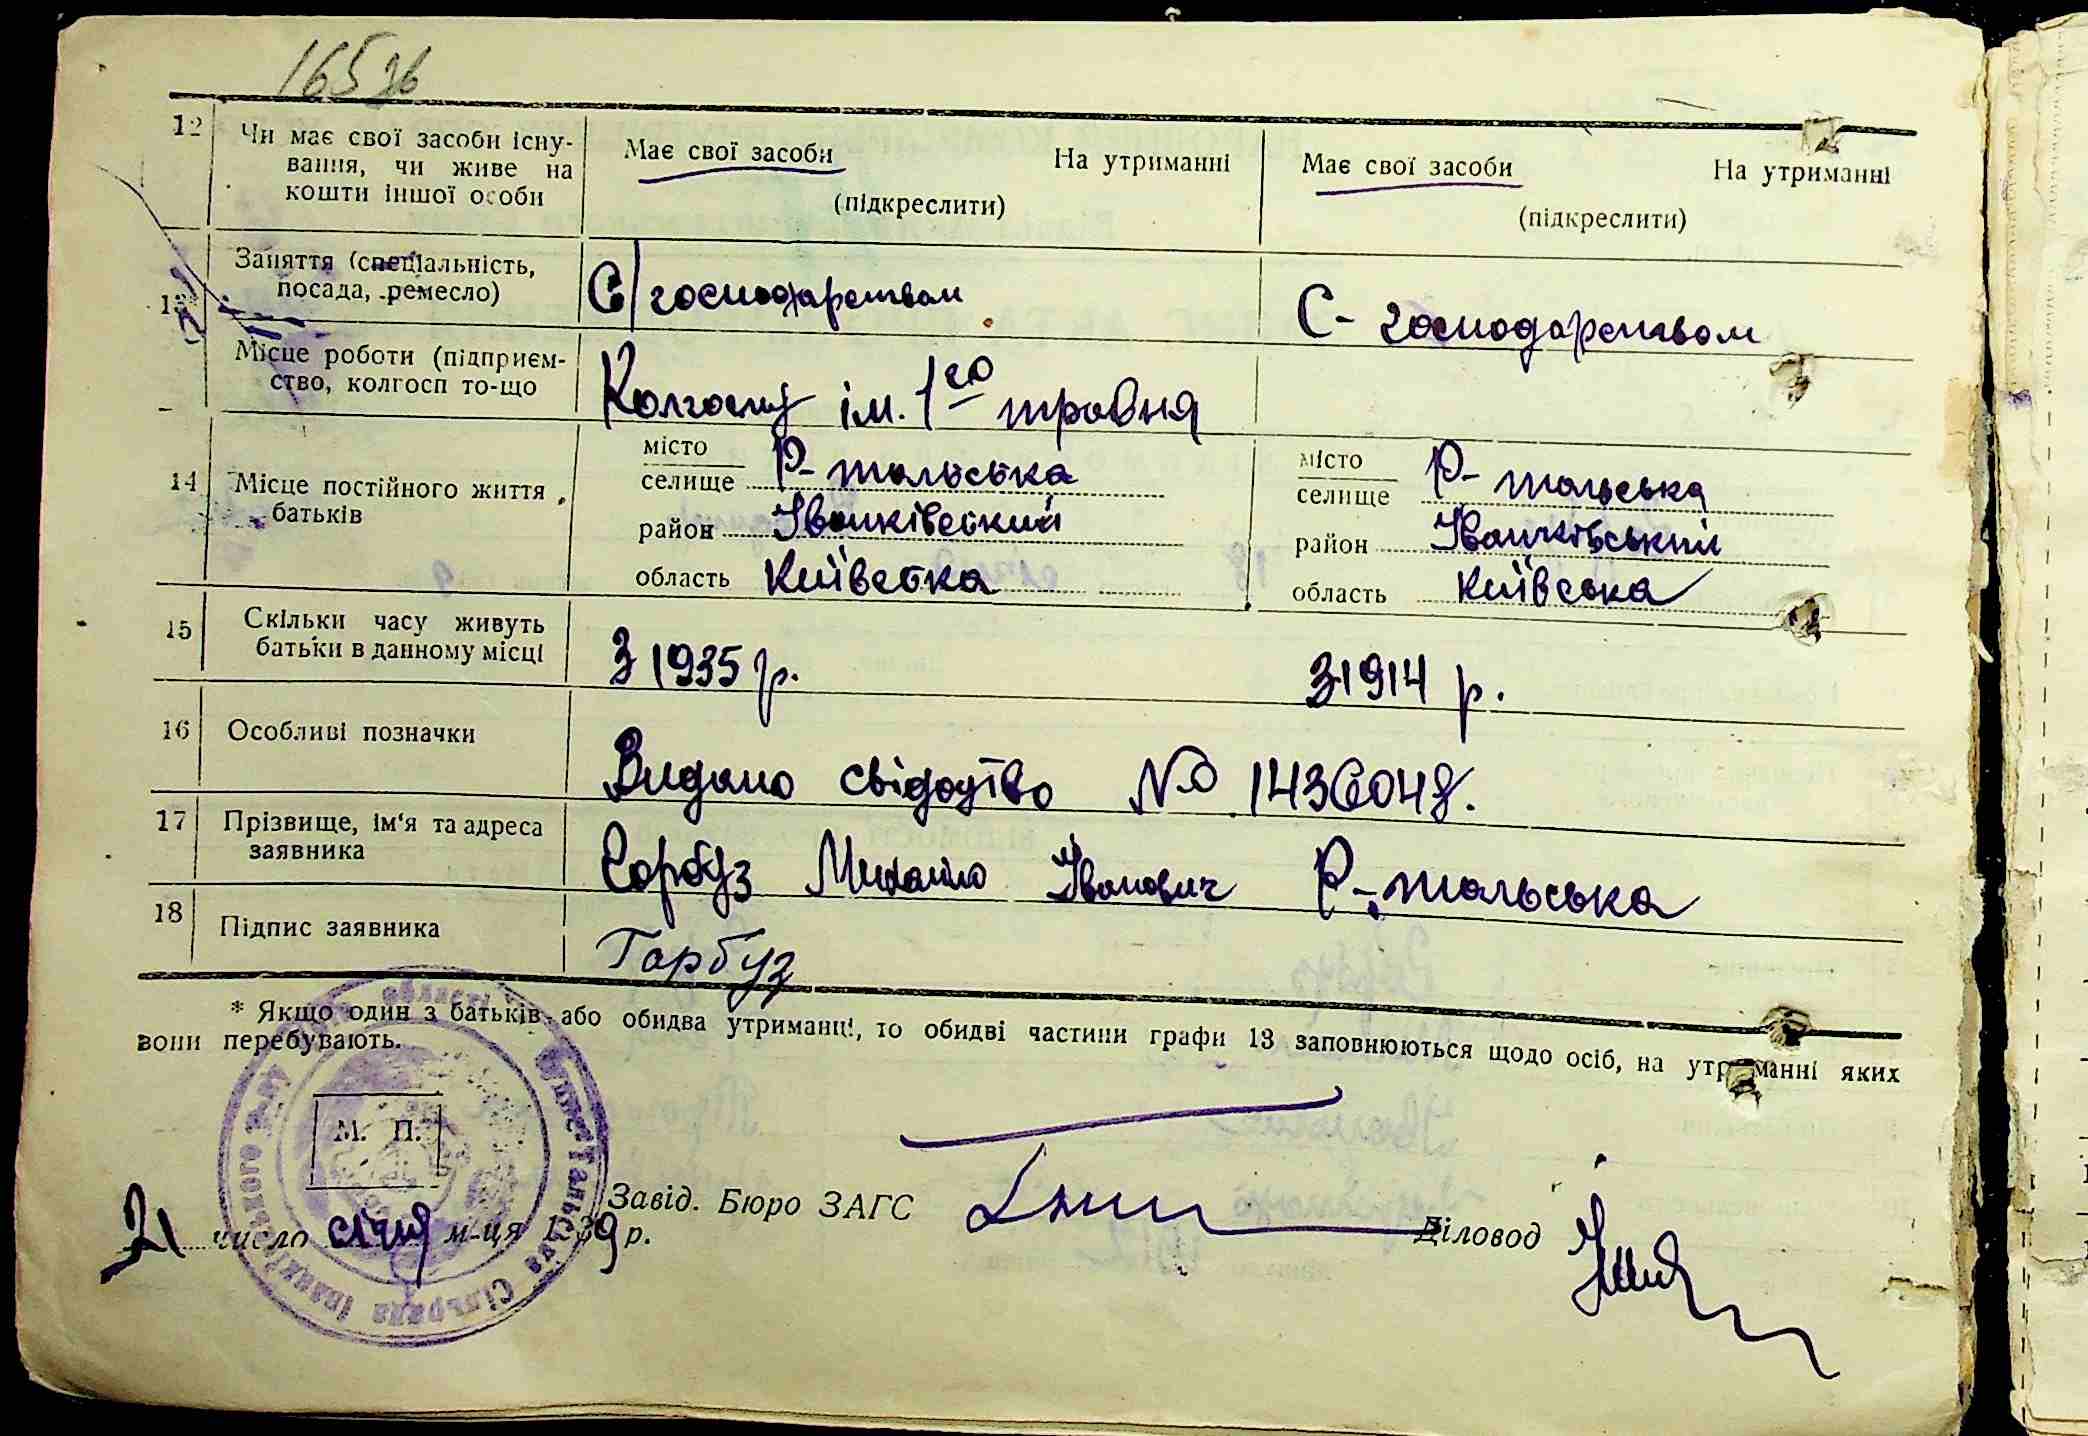 165 зв
12 Чи має свої засоби існу-
вання, чи живе на
кошти іншої особи
Має свої засоби На утриманні
(підкреслити)
Має свої засоби На утриманні
(підкреслити)
13 Заняття (спеціальність,
посада, ремесло)
С/господарством
С- господарством
Місце роботи (підприєм-
ство, колгосп то-що
Колгосп ім. 1го травня
14 Місце постійного життя
батьків
місто
селище Р-тальська
район Іванківський
область Київська
місто
селище Р-тальська
район Іванківський
область Київська
15 Скільки часу живуть
батьки в данному місці
З 1935 р.
З 1914 р.
16 Особливі позначки
Видано свідоцтво № 1436048.
17 Прізвище, ім'я та адреса
заявника
Гарбуз Михайло Іванович Р-тальська
18 Підпис заявника
Гарбуз
* Якщо один з батьків або обидва утриманці, то обидві частини графи 13 заповнюються щодо осіб, на утриманні яких
вони перебувають.
М. П.
21 число січня м-ця 1939 р.
Завід. Бюро ЗАГС
Діловод